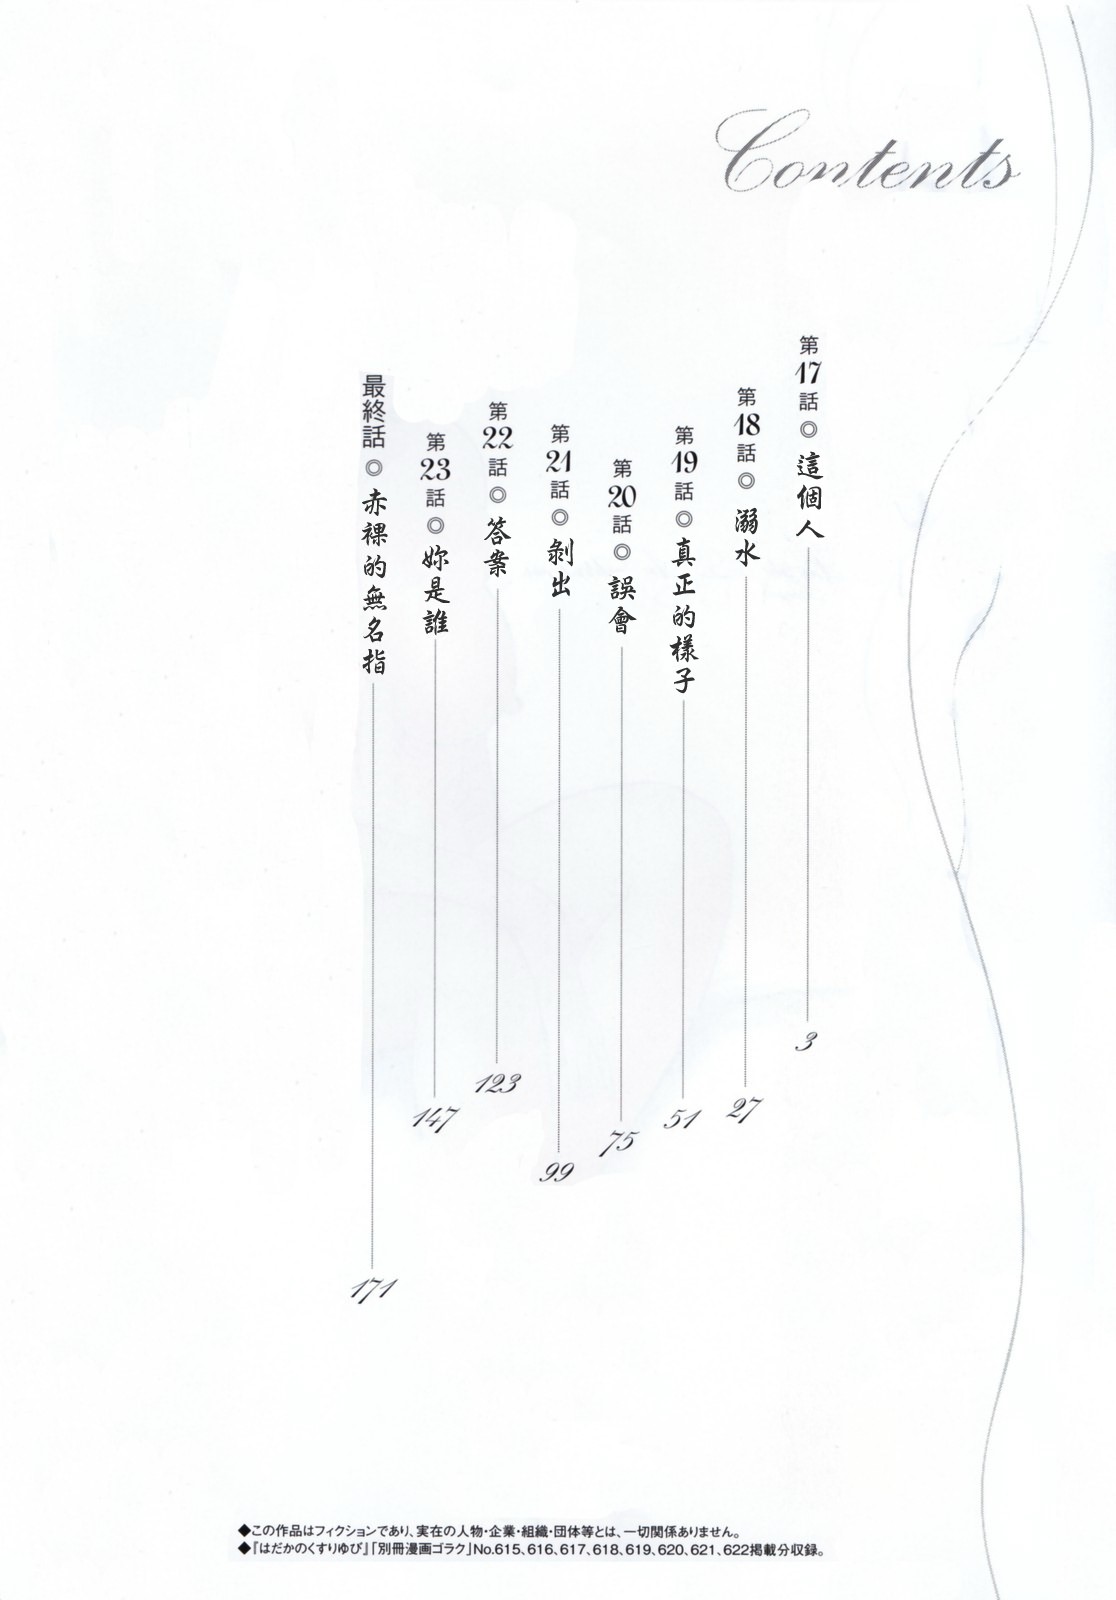 Contents
第17話◎這個人 3
第18話◎溺水 27
第19話◎真正的樣子 51
第20話◎誤會 75
第21話◎剝出 99
第22話◎答案 123
第23話◎妳是誰 147
最終話◎赤裸的無名指 171
◆この作品はフィクションであり、実在の人物・企業・組織・団体等とは、一切関係ありません。
◆『はだかのくすりゆび』「別冊漫画ゴラク」No.615、616、617、618、619、620、621、622掲載分収録。